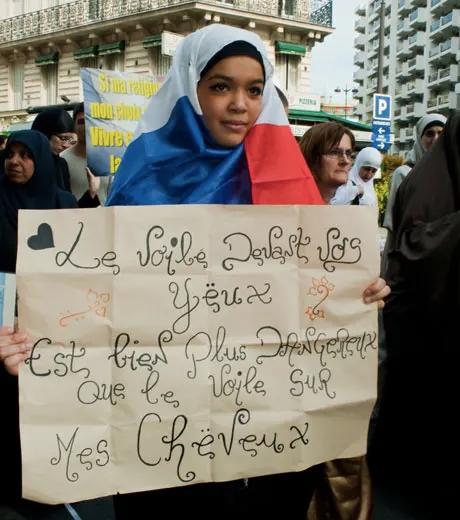 Si ma religi
mon choix
Vivre
la
P
PIZZERIA
Le Voile Devant Vos
Yëux
Est bien Plus DANGEREUX
Que le Voile SUR
Mes Chëveux